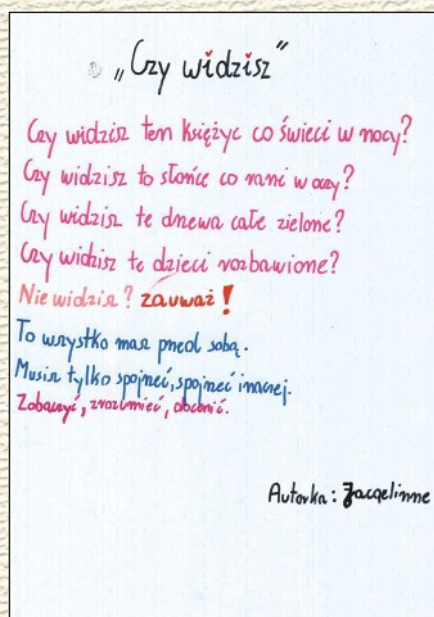 „Czy widzisz"
Czy widzisz ten księżyc co świeci w nocy?
Czy widzisz to słońce co rani w oczy?
Czy widzisz te drzewa całe zielone?
Czy widzisz te dzieci rozbawione?
Nie widzisz? zauważ!
To wszystko masz przed sobą.
Musisz tylko spojrzeć, spojrzeć inaczej.
Zobaczyć, zrozumieć, docenić.
Autorka: Jacqelinne